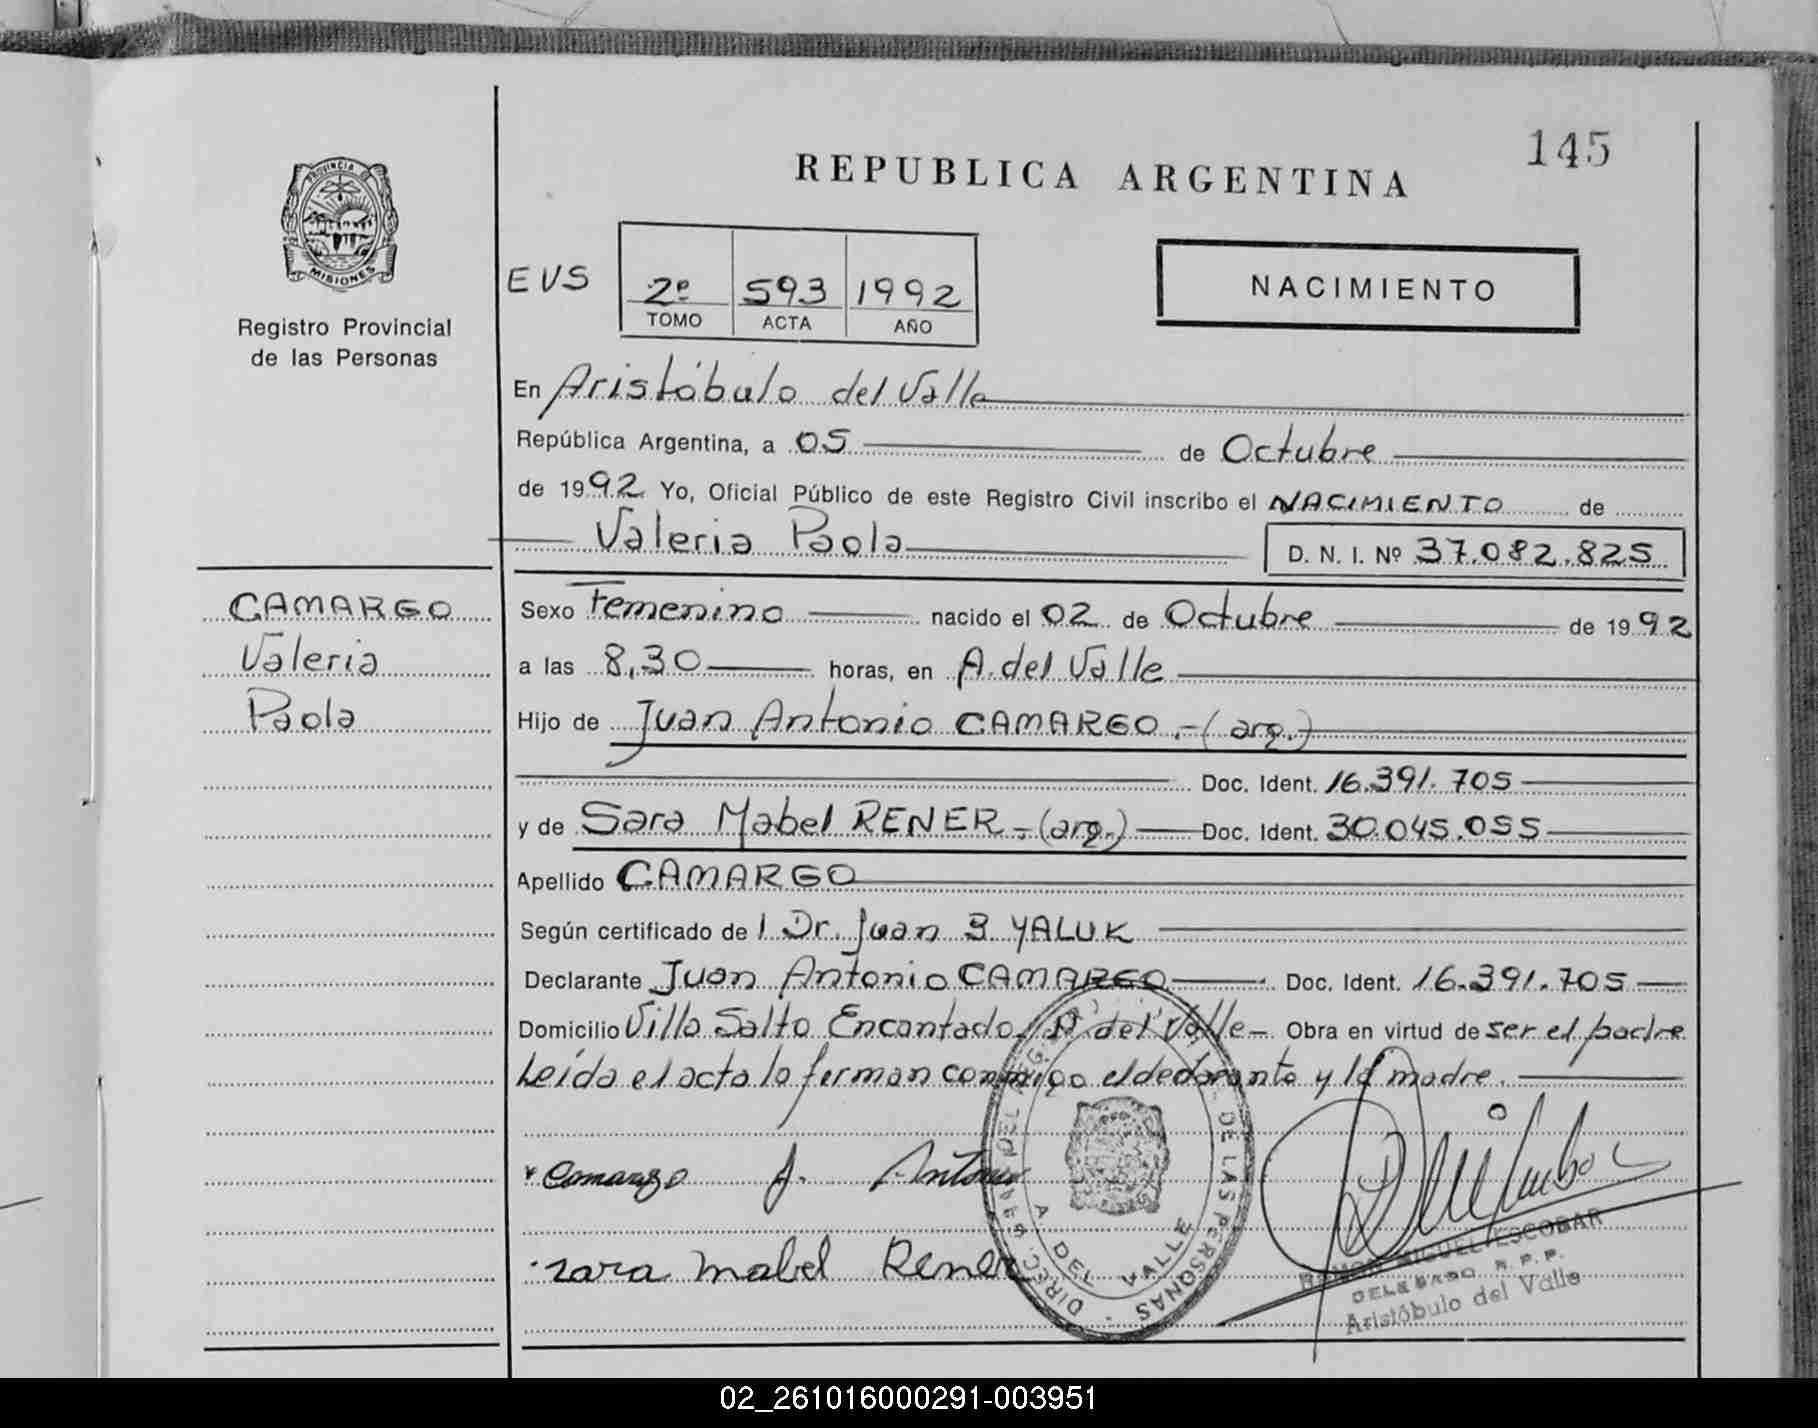 145
REPUBLICA ARGENTINA
PROVINCIA DE
MISIONES
Registro Provincial
de las Personas
EVS
2º 593 1992
TOMO ACTA AÑO
NACIMIENTO
En Aristóbulo del Valle
República Argentina, a 05 de Octubre
de 1992 Yo, Oficial Público de este Registro Civil inscribo el NACIMIENTO de
Valeria Paola D. N. I. Nº 37.082.825
CAMARGO
Valeria
Paola
Sexo Femenino nacido el 02 de Octubre de 1992
a las 8,30 horas, en A. del Valle
Hijo de Juan Antonio CAMARGO.-(arg.)
Doc. Ident. 16.391.705
y de Sara Mabel RENER.-(arg.) Doc. Ident. 30.045.055
Apellido CAMARGO
Según certificado de l Dr. Juan B YALUK
Declarante Juan Antonio CAMARGO Doc. Ident. 16.391.705
Domicilio Villa Salto Encantado, A del Valle- Obra en virtud de ser el padre
Leída el acta la firman conmigo el declarante y la madre.
Camargo J. Antonio
zara mabel Rener
DE LAS PERSONAS
A DEL VALLE
RAMON MIGUEL ESCOBAR
DELEGADO R. P. P.
Aristóbulo del Valle
02_261016000291-003951